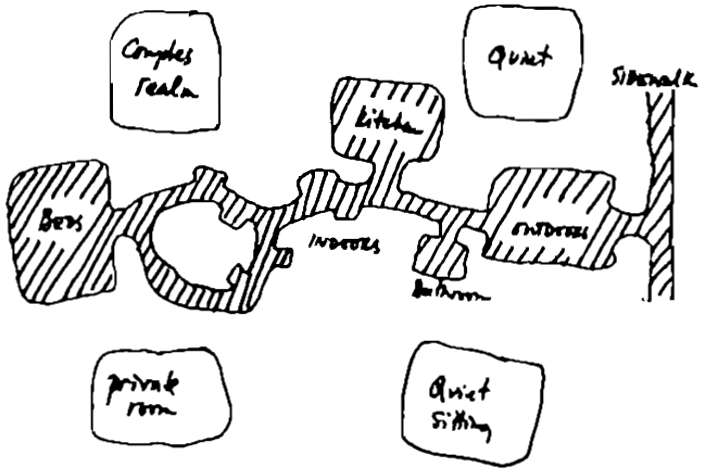 Couples
realm
Quiet
Sidewalk
Kitchen
Beds
INDOORS
OUTDOORS
Bathroom
private
room
Quiet
Sitting